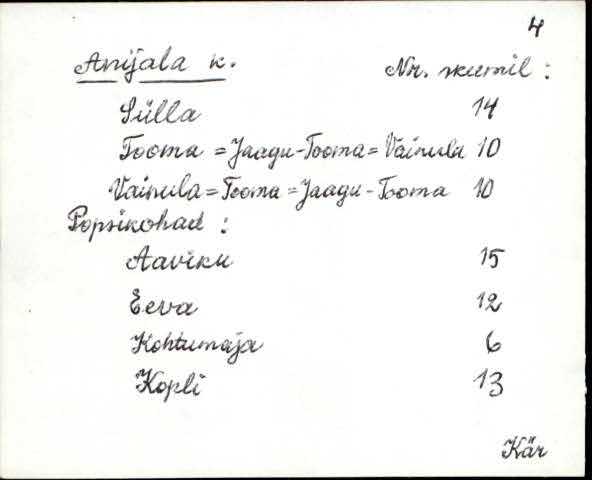 4
Anijala k. Nr. skeemil :
Sülla 14
Tooma = Jaagu-Tooma = Vainula 10
Vainula = Tooma = Jaagu - Tooma 10
Popsikohad :
Aaviku 15
Eeva 12
Kohtumaja 6
Kopli 13
Kär